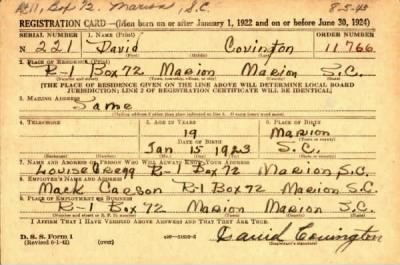 Rt 1, Box 72. Marion, S.C. 8-5-43
REGISTRATION CARD—(Men born on or after January 1, 1922 and on or before June 30, 1924)
SERIAL NUMBER 1. NAME (Print) ORDER NUMBER
N 221 David Covington 11766
2. PLACE OF RESIDENCE (Print)
R-1 Box 72 Marion Marion S.C.
[THE PLACE OF RESIDENCE GIVEN ON THE LINE ABOVE WILL DETERMINE LOCAL BOARD
JURISDICTION; LINE 2 OF REGISTRATION CERTIFICATE WILL BE IDENTICAL]
3. MAILING ADDRESS
Same
[Mailing address if other than place indicated on line 2. If same insert word same]
4. TELEPHONE 5. AGE IN YEARS 6. PLACE OF BIRTH
19 Marion
DATE OF BIRTH
Jan 15 1923 S.C.
7. NAME AND ADDRESS OF PERSON WHO WILL ALWAYS KNOW YOUR ADDRESS
Louise Gregg R-1 Box 72 Marion S.C.
8. EMPLOYER'S NAME AND ADDRESS
Mack Carson R-1 Box 72 Marion S.C.
9. PLACE OF EMPLOYMENT OR BUSINESS
R-1 Box 72 Marion Marion S.C.
I AFFIRM THAT I HAVE VERIFIED ABOVE ANSWERS AND THAT THEY ARE TRUE.
D. S. S. Form 1
(Revised 6-1-42) (over)
David Covington